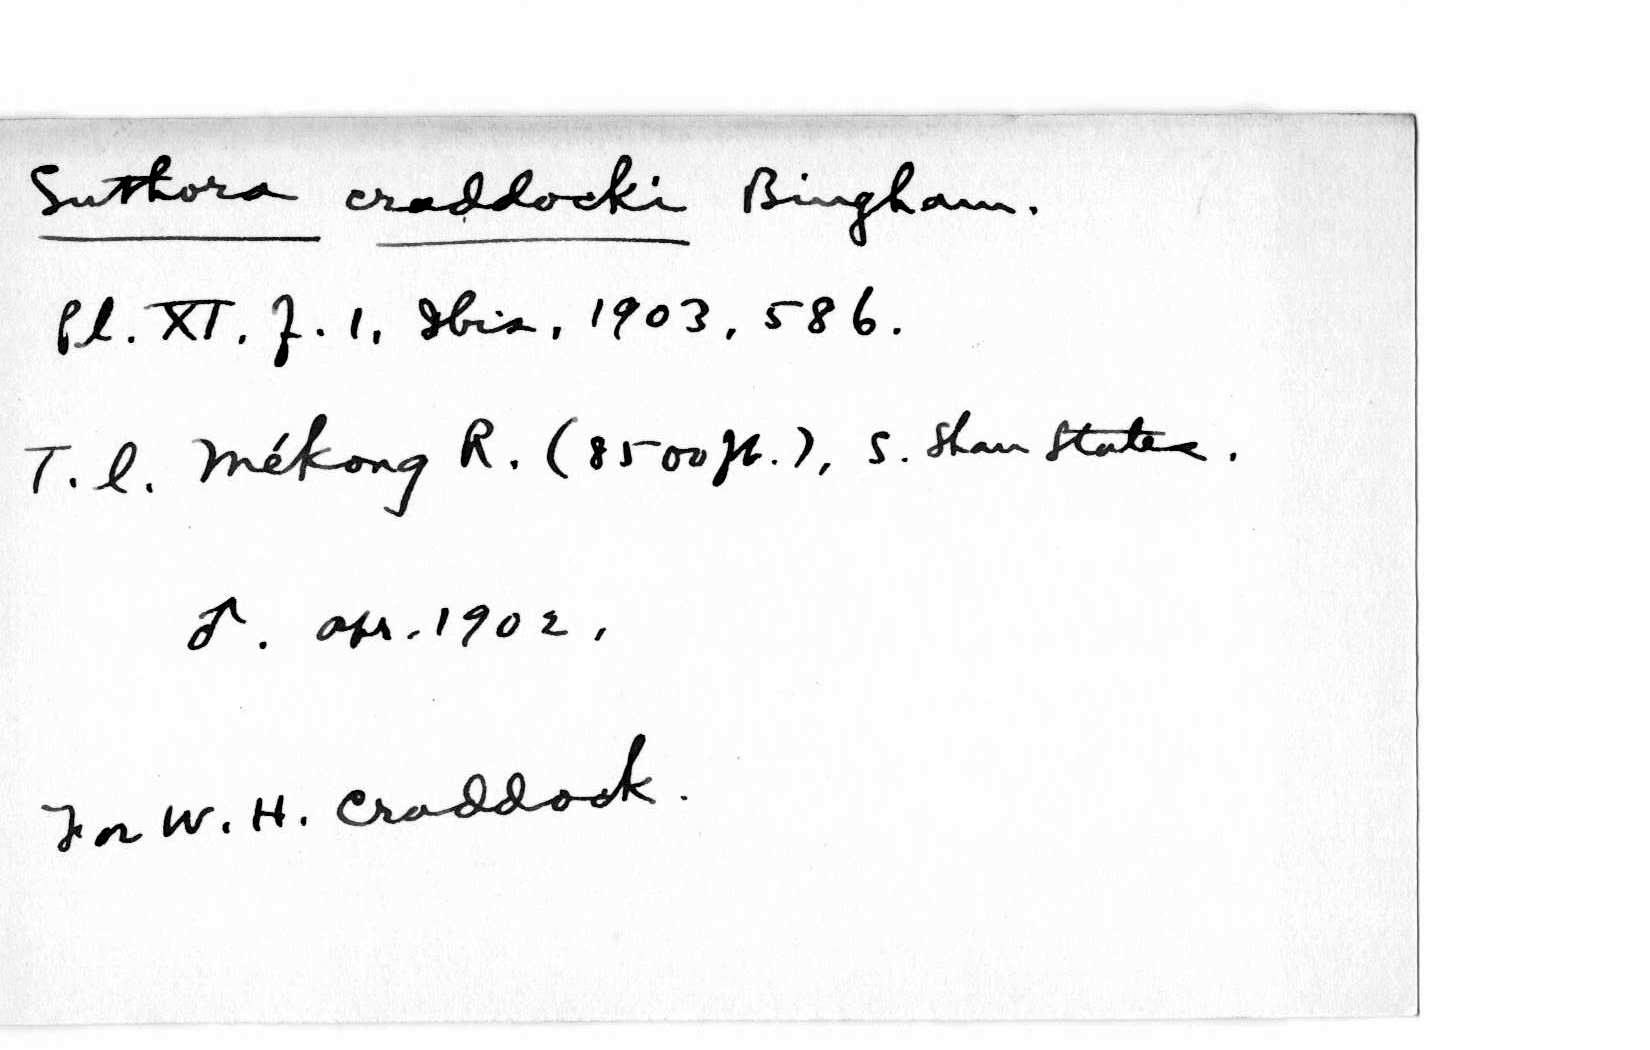 Suthora craddocki Bingham.
Pl. XI. f. 1, Ibis, 1903, 586.
T. l. Mékong R. (8500ft.), S. Shan States.
♂. Apr. 1902,
For W. H. Craddock.